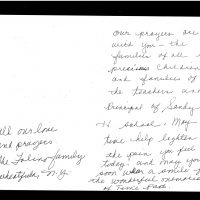 Our prayers are
with you – the
families of all
precious children
and families of
the teachers and
Principal of Sandy
H school. May
time help lighten
the pain you feel
today and may you
soon wear a smile
the wonderful memories
of Time Past.
all our love
and prayers
The family
N.Y.